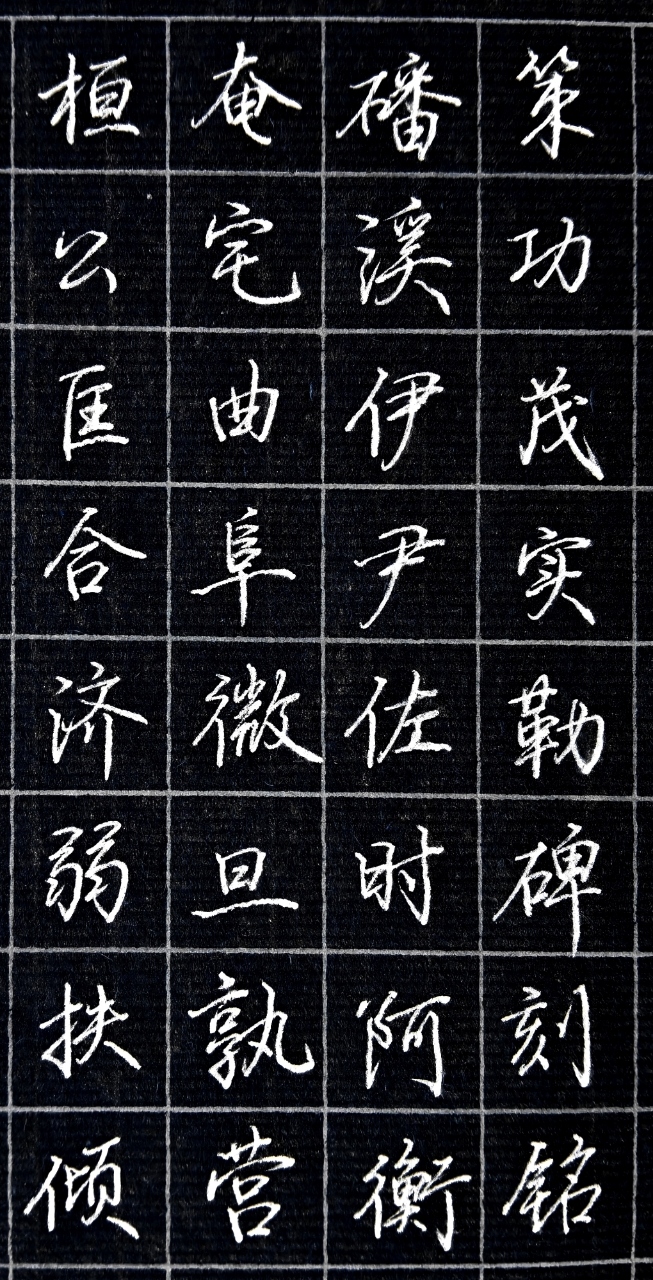 策功茂实勒碑刻铭
磻溪伊尹佐时阿衡
奄宅曲阜微旦孰营
桓公匡合济弱扶倾